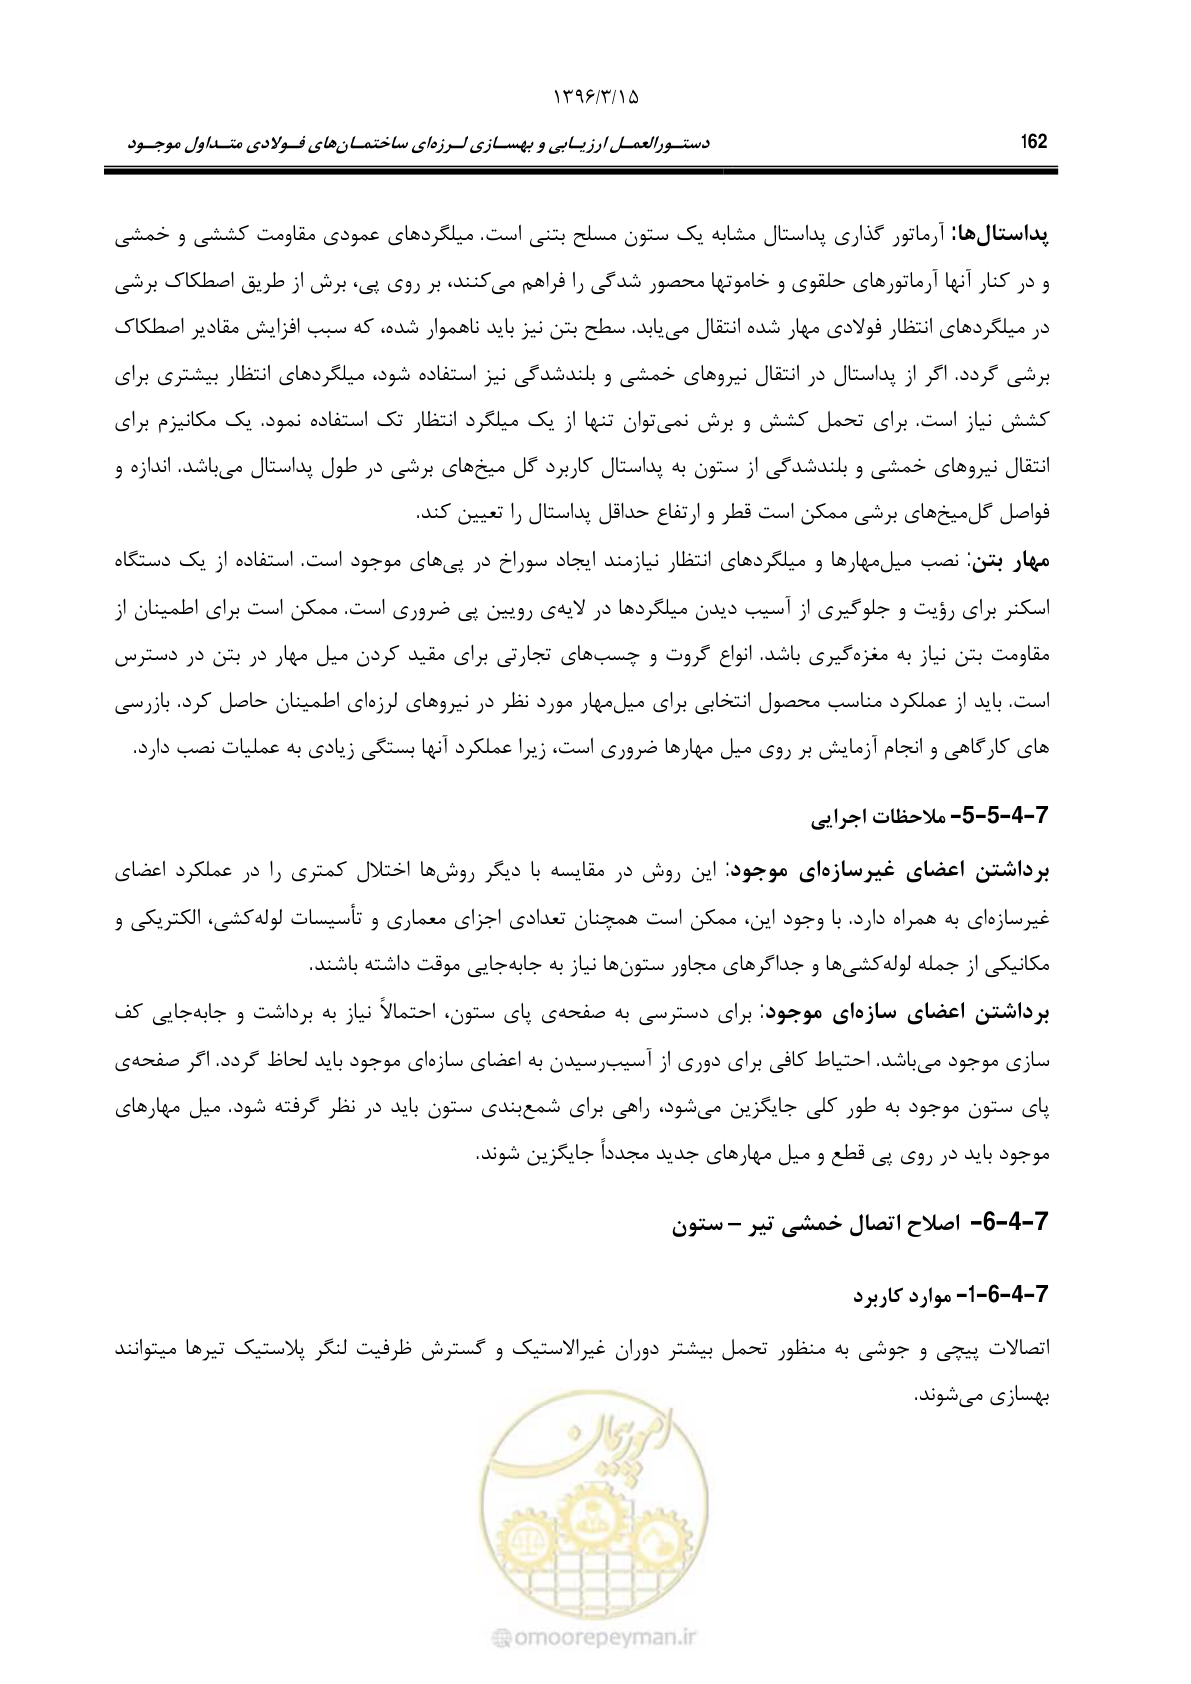 ۱۳۹۶/۳/۱۵
162
دستــورالعمــل ارزیــابی و بهســازی لــرزه‌ای ساختمــان‌های فــولادی متــداول موجــود
پداستال‌ها: آرماتور گذاری پداستال مشابه یک ستون مسلح بتنی است. میلگردهای عمودی مقاومت کششی و خمشی
و در کنار آنها آرماتورهای حلقوی و خاموتها محصور شدگی را فراهم می‌کنند، بر روی پی، برش از طریق اصطکاک برشی
در میلگردهای انتظار فولادی مهار شده انتقال می‌یابد. سطح بتن نیز باید ناهموار شده، که سبب افزایش مقادیر اصطکاک
برشی گردد. اگر از پداستال در انتقال نیروهای خمشی و بلندشدگی نیز استفاده شود، میلگردهای انتظار بیشتری برای
کشش نیاز است. برای تحمل کشش و برش نمی‌توان تنها از یک میلگرد انتظار تک استفاده نمود. یک مکانیزم برای
انتقال نیروهای خمشی و بلندشدگی از ستون به پداستال کاربرد گل میخ‌های برشی در طول پداستال می‌باشد. اندازه و
فواصل گل‌میخ‌های برشی ممکن است قطر و ارتفاع حداقل پداستال را تعیین کند.
مهار بتن: نصب میل‌مهارها و میلگردهای انتظار نیازمند ایجاد سوراخ در پی‌های موجود است. استفاده از یک دستگاه
اسکنر برای رؤیت و جلوگیری از آسیب دیدن میلگردها در لایه‌ی رویین پی ضروری است. ممکن است برای اطمینان از
مقاومت بتن نیاز به مغزه‌گیری باشد. انواع گروت و چسب‌های تجارتی برای مقید کردن میل مهار در بتن در دسترس
است. باید از عملکرد مناسب محصول انتخابی برای میل‌مهار مورد نظر در نیروهای لرزه‌ای اطمینان حاصل کرد. بازرسی
های کارگاهی و انجام آزمایش بر روی میل مهارها ضروری است، زیرا عملکرد آنها بستگی زیادی به عملیات نصب دارد.
7-4-5-5- ملاحظات اجرایی
برداشتن اعضای غیرسازه‌ای موجود: این روش در مقایسه با دیگر روش‌ها اختلال کمتری را در عملکرد اعضای
غیرسازه‌ای به همراه دارد. با وجود این، ممکن است همچنان تعدادی اجزای معماری و تأسیسات لوله‌کشی، الکتریکی و
مکانیکی از جمله لوله‌کشی‌ها و جداگرهای مجاور ستون‌ها نیاز به جابه‌جایی موقت داشته باشند.
برداشتن اعضای سازه‌ای موجود: برای دسترسی به صفحه‌ی پای ستون، احتمالاً نیاز به برداشت و جابه‌جایی کف
سازی موجود می‌باشد. احتیاط کافی برای دوری از آسیب‌رسیدن به اعضای سازه‌ای موجود باید لحاظ گردد. اگر صفحه‌ی
پای ستون موجود به طور کلی جایگزین می‌شود، راهی برای شمع‌بندی ستون باید در نظر گرفته شود. میل مهارهای
موجود باید در روی پی قطع و میل مهارهای جدید مجدداً جایگزین شوند.
7-4-6- اصلاح اتصال خمشی تیر – ستون
7-4-6-1- موارد کاربرد
اتصالات پیچی و جوشی به منظور تحمل بیشتر دوران غیرالاستیک و گسترش ظرفیت لنگر پلاستیک تیرها میتوانند
بهسازی می‌شوند.
امور پیمان
omoorepeyman.ir